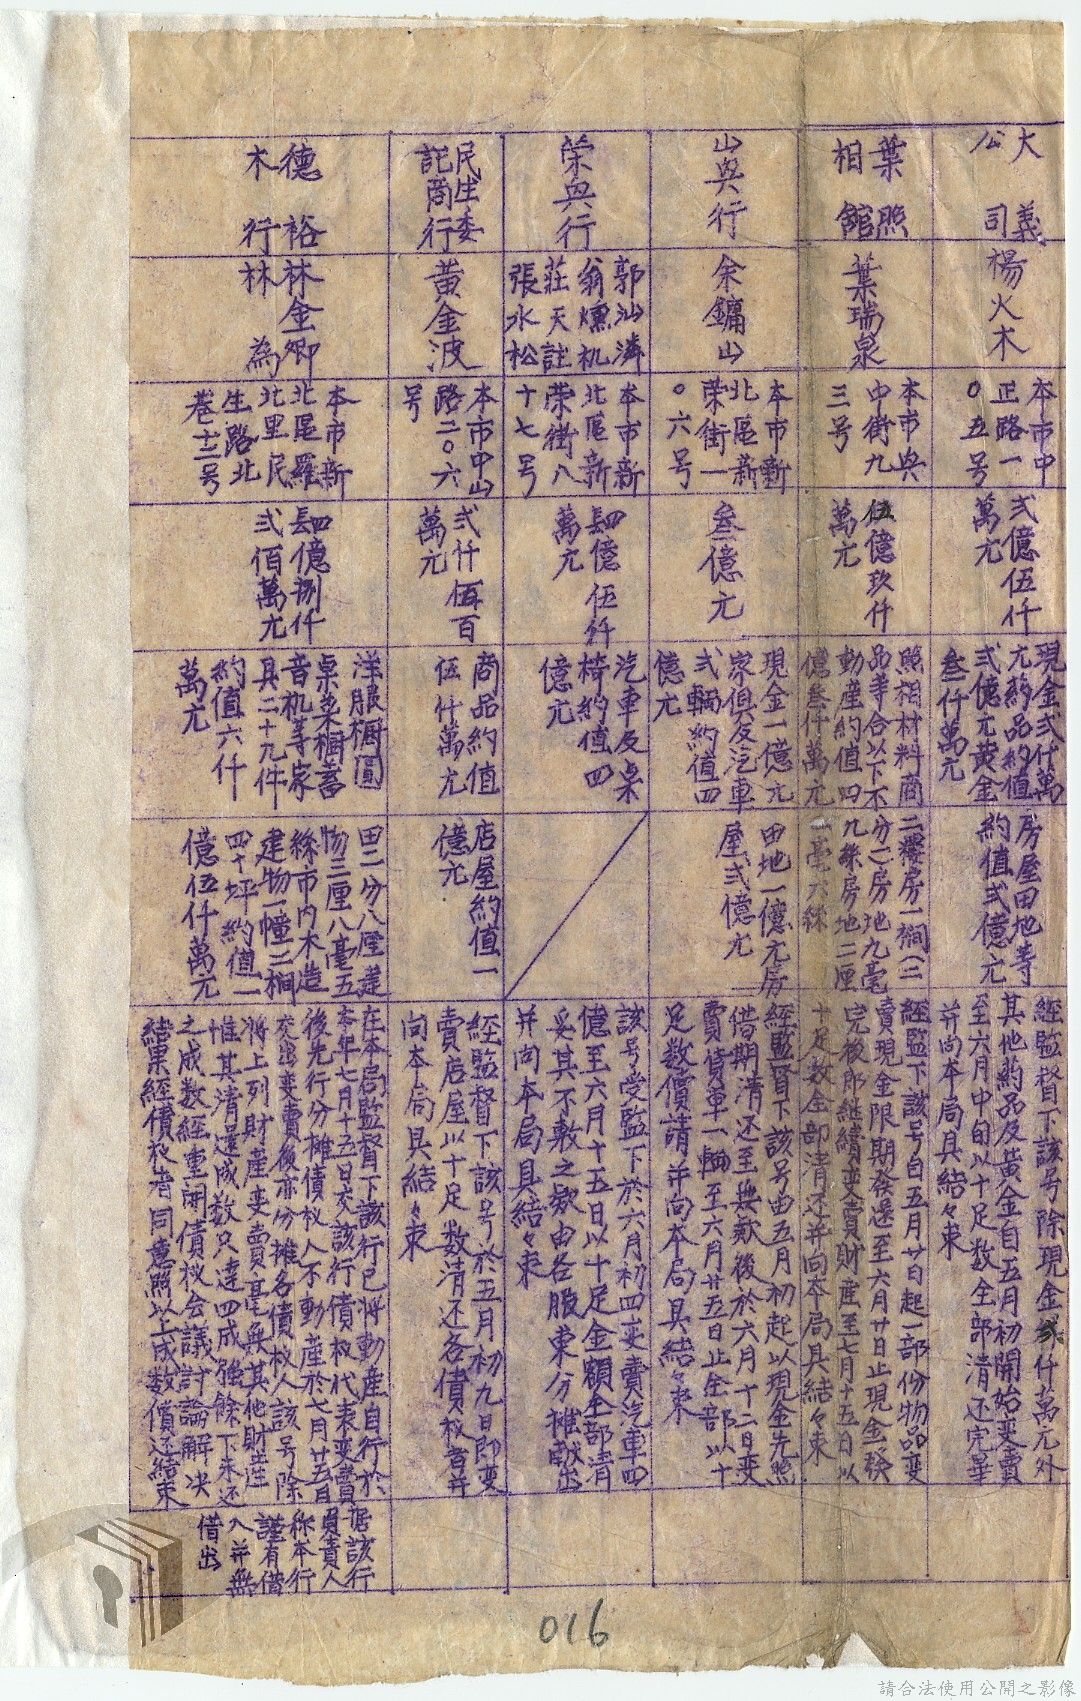 大義
公司
楊火木
本市中
正路一
０五号
弍億伍仟
萬亢
現金弍仟萬
亢葯品約值
弍億亢黃金
叁仟萬亢
房屋田地等
約值弍億亢
經監督下該号除現金弍仟萬元外
其他葯品及黃金自五月初開始变賣
至六月中旬以十足数全部清还完畢
并向本局具結々束
葉照
相館
葉瑞泉
本市與
中街九
三号
伍億玖仟
萬亢
照相材料商
品等合以下不
動産約值四
億叁仟萬亢
二樓房一裥(三
分二房地九毫
九絲房地二厘
一毫六絲
經監下該号自五月廿日起一部份物品变
賣現金限期發還至六月廿日止現金發
完後即继續变賣財産至七月十五日以
十足数全部清还并向本局具結々束
山與行
余鏞山
本市新
北區新
榮街一
０六号
叁億亢
現金一億亢
家俱及汽車
弍輛約值四
億亢
田地一億亢房
屋弍億亢
經監督下該号由五月初起以現金先照
借期清还至無欵後於六月十二日变
賣貨車一輛至六月廿五日止全部以十
足数償請并向本局具結々束
榮與行
郭汕濤
翁燻机
莊天註
張水松
本市新
北區新
榮街八
十七号
四億伍仟
萬亢
汽車及桌
椅約值四
億亢
該号受監下於六月初四变賣汽車四
億至六月十五日以十足金額全部清
妥其不敷之欵由各股東分摊献出
并向本局具結々束
民生委
託商行
黃金波
本市中山
路二０六
号
弍仟伍百
萬亢
商品約值
伍仟萬亢
店屋約值一
億亢
經監督下該号於五月初九日即变
賣店屋以十足数清还各債权者并
向本局具結々束
德裕
木行
林金卿
林為
本市新
北區羅
北里民
生路北
巷十三号
四億捌仟
弍佰萬亢
洋服橱圓
桌菜橱蓄
音机等家
具二十九件
約值六仟
萬亢
田二分八厘建
物三厘八毫五
絲市内木造
建物一幢二裥
四十坪約值一
億伍仟萬亢
在本局監督下該行已將動産自行於
本年七月十五日交該行債权代表变賣
後先行分摊債权人不動産於七月廿五日
交出变賣後亦分摊各債权人該号除
將上列財産变賣毫無其他財産
惟其清還成数只達四成強餘下未还
之成数經重開債权会議討論解决
結果經債权者同意照以上成数償还結束
据該行
負責人
称本行
謹有借
入并無
借出
016
請合法使用公開之影像